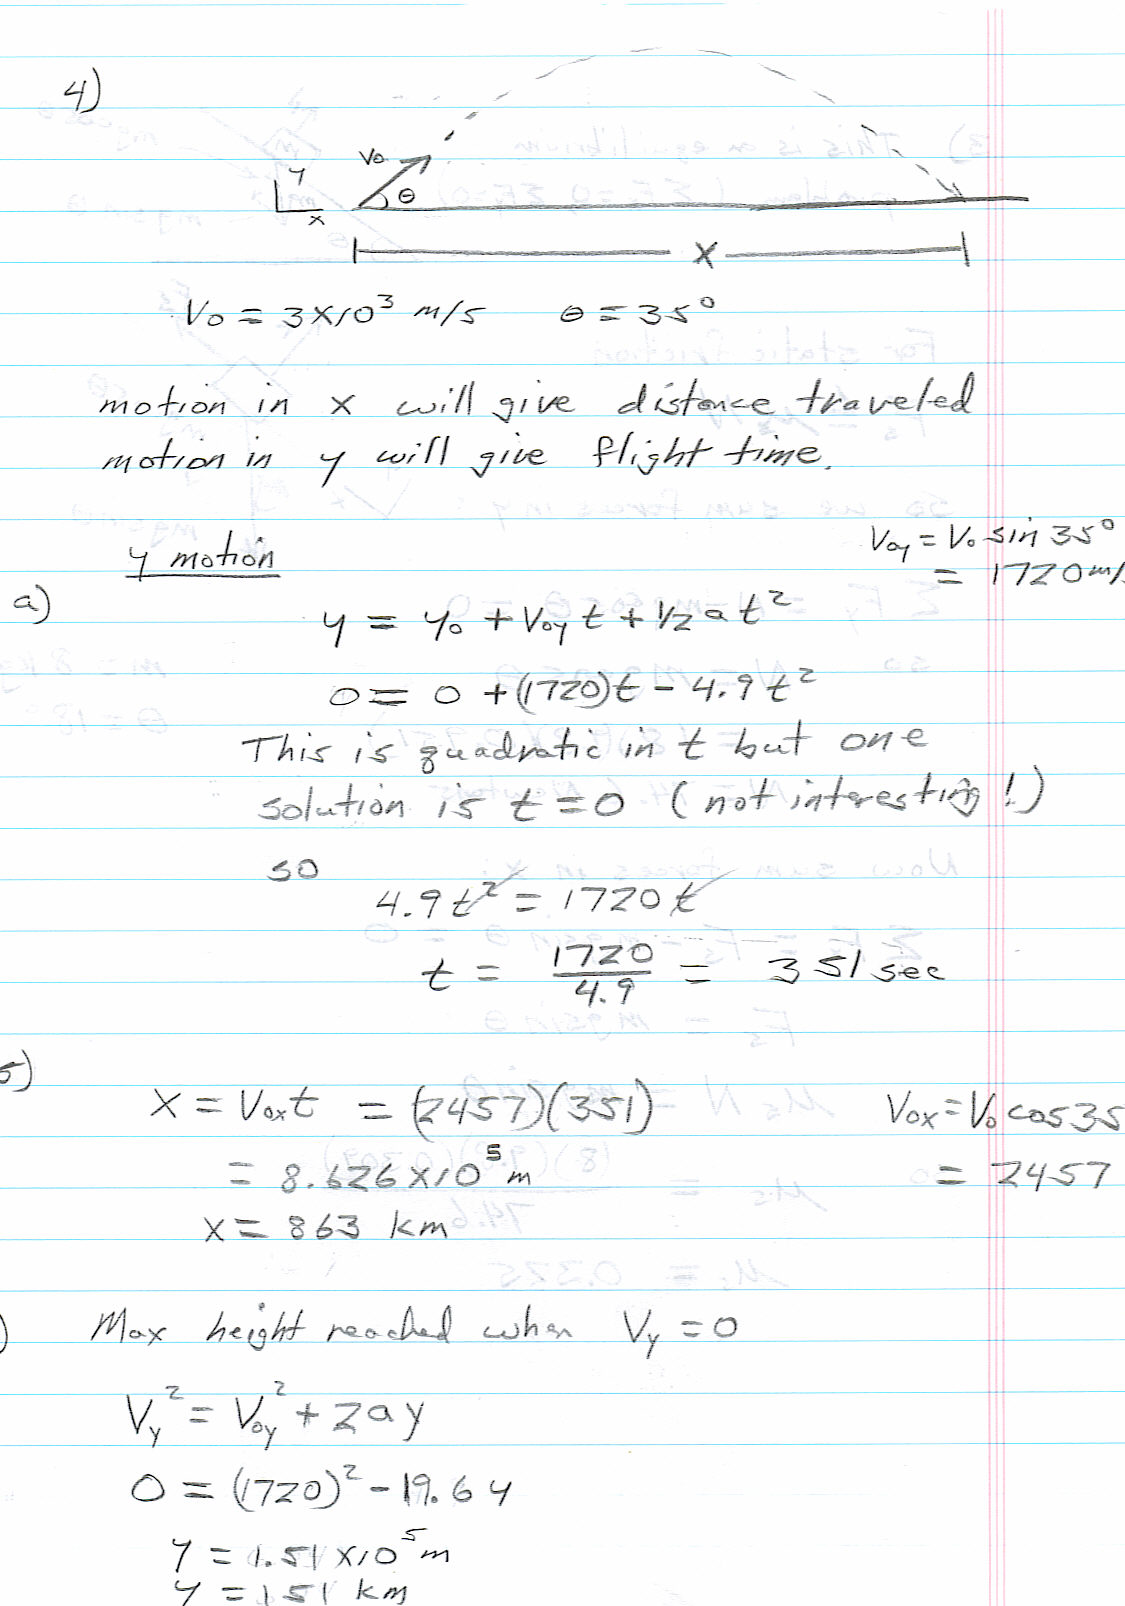 4)
Vo
y
θ
x
X
Vo = 3×10³ m/s θ = 35°
motion in x will give distance traveled
motion in y will give flight time.
y motion
Voy = Vo sin 35°
= 1720 m/s
a)
y = yo + Voy t + 1/2 a t²
0 = 0 + (1720)t - 4.9 t²
This is quadratic in t but one
solution is t = 0 (not interesting!)
so
4.9 t² = 1720 t
t = 1720/4.9 = 351 sec
b)
X = Vox t = (2457)(351)
Vox = Vo cos 35
= 8.626 × 10⁵ m
= 2457
x = 863 km
)
Max height reached when Vy = 0
Vy² = Voy² + 2ay
0 = (1720)² - 19.6 y
y = 1.51 × 10⁵ m
y = 151 km